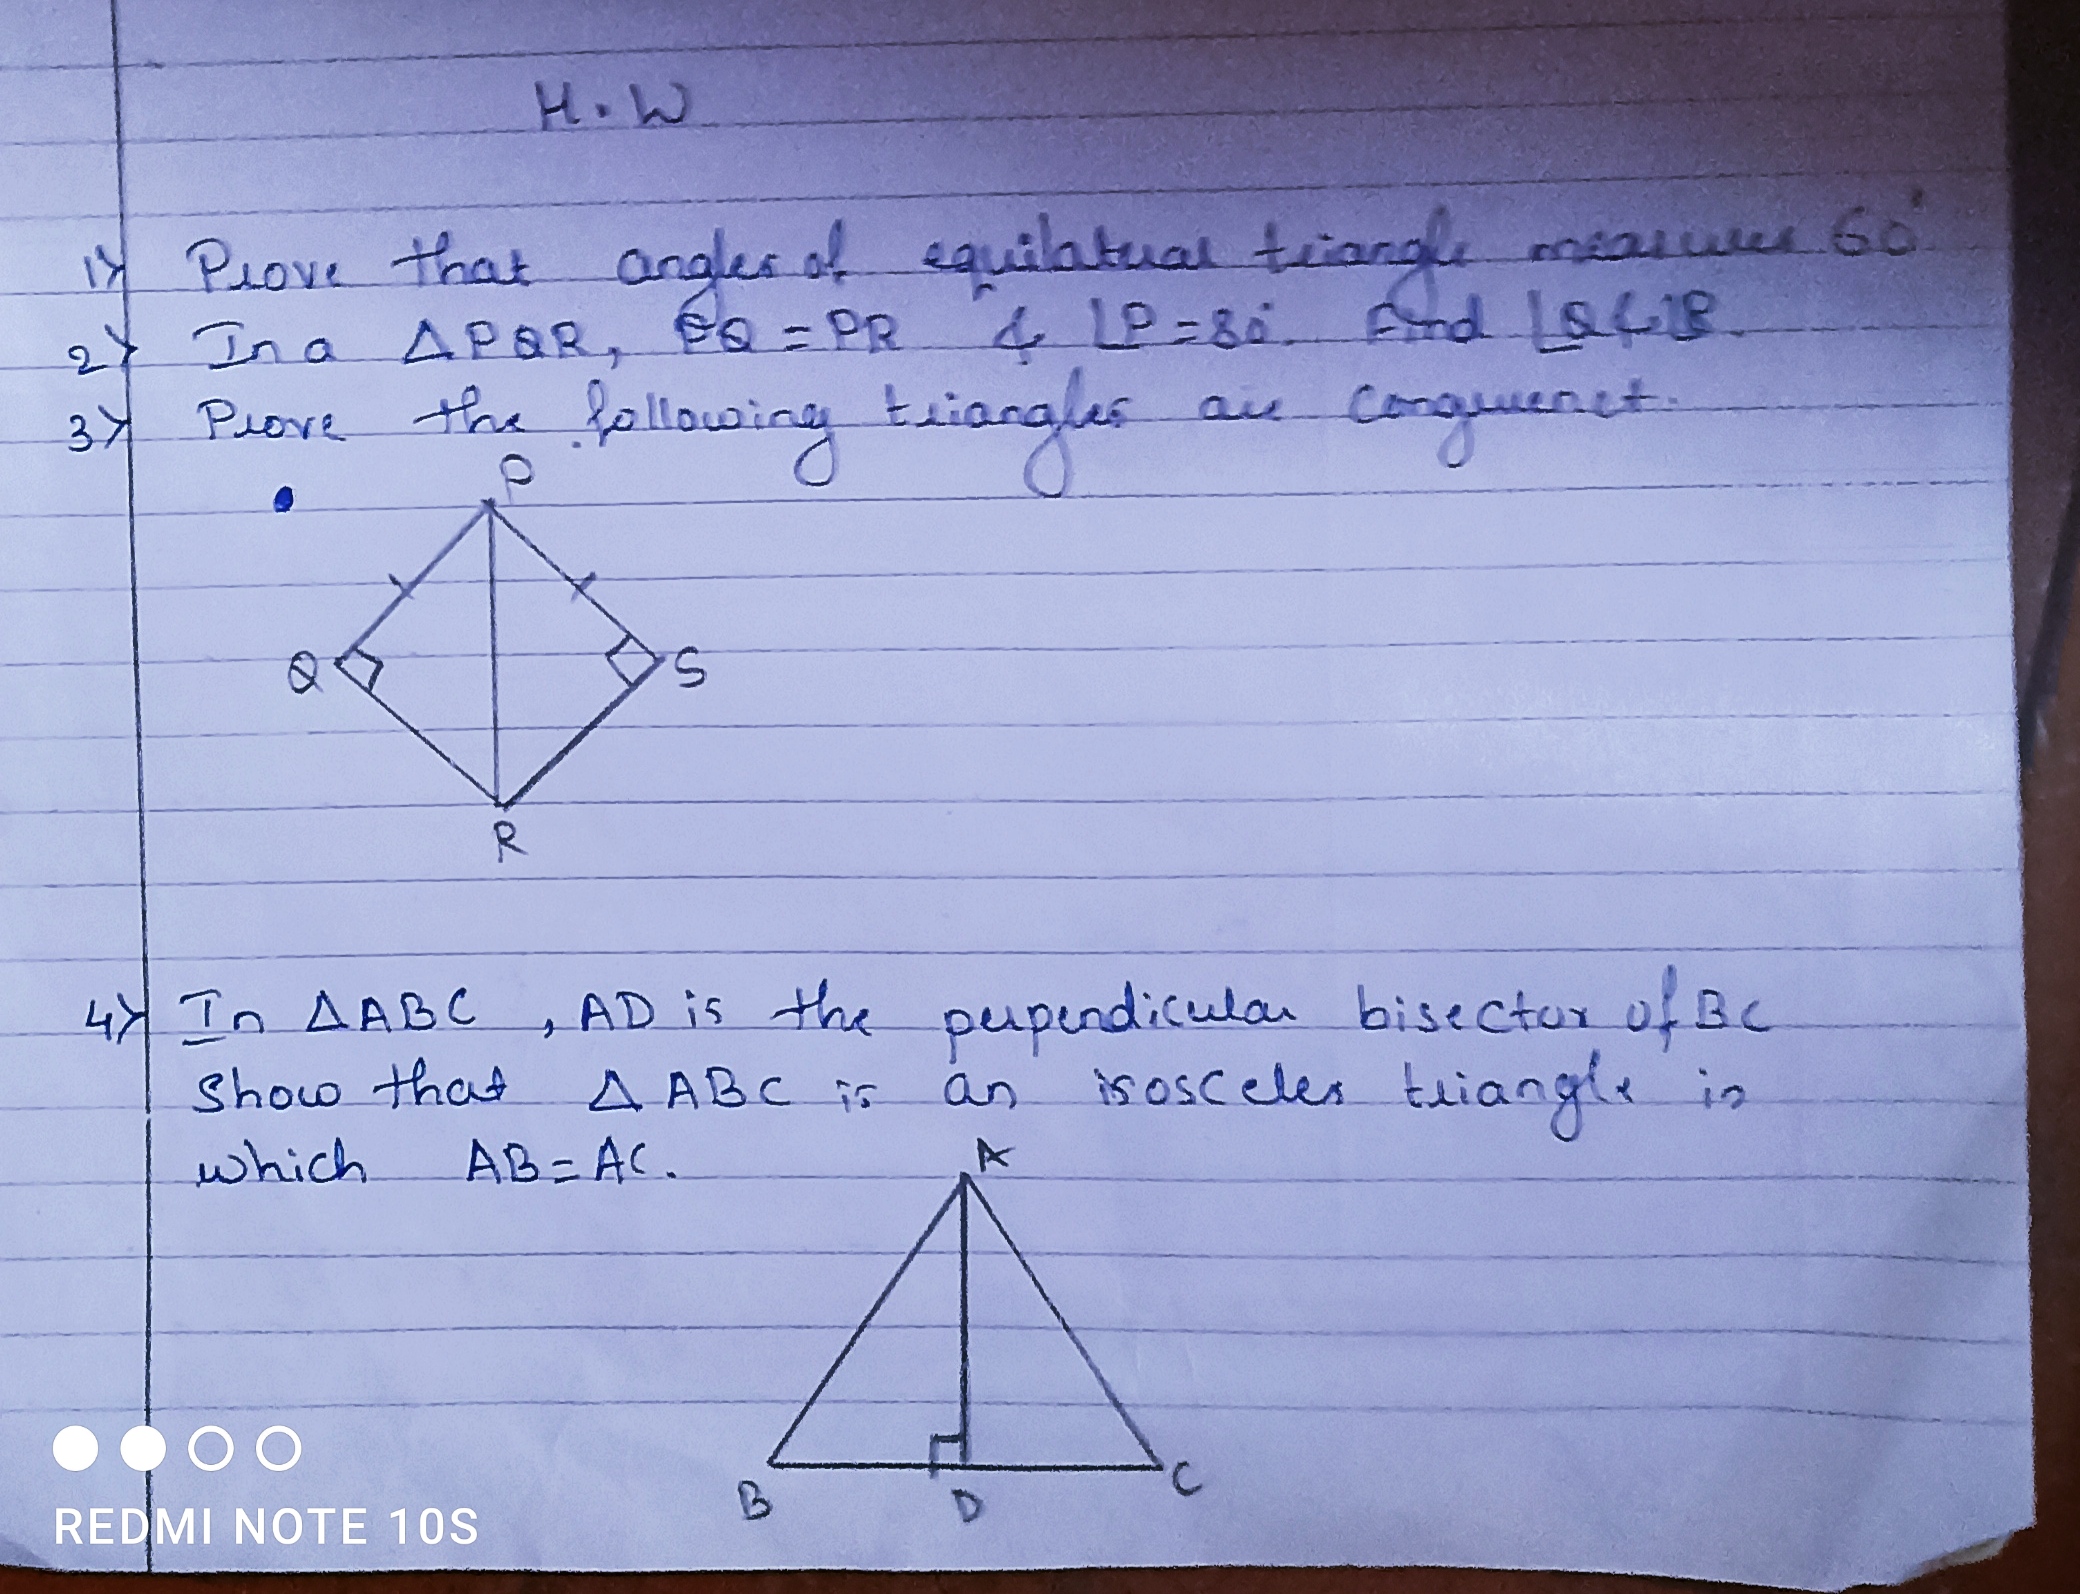 H.W
1) Prove that angles of equilateral triangle measures 60°
2) In a △PQR, PQ = PR & ∠P = 80°. Find ∠Q & ∠R.
3) Prove the following triangles are congruenct.
P
Q
S
R
4) In △ABC, AD is the perpendicular bisector of BC
Show that △ABC is an isosceles triangle in
which AB = AC.
A
B
D
C
REDMI NOTE 10S